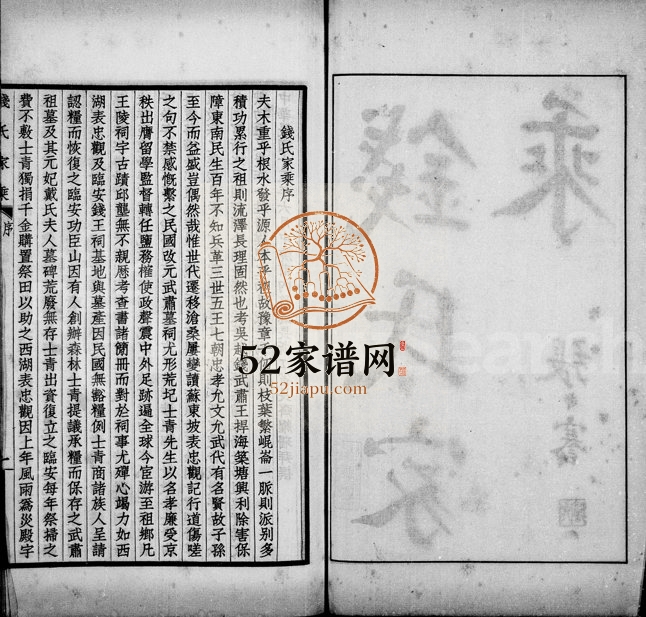 乘
錢氏家
張謇
錢氏家乘序
夫木重乎根水發乎源人本乎祖故豫章
則枝葉繁崐崙一脈則派别多
積功累行之祖則流澤長理固然也考吳越
武肅王捍海築塘興利除害保
障東南民生百年不知兵革三世五王七朝忠孝允文允武代有名賢故子孫
至今而益盛豈偶然哉惟世代遷移滄桑屢變讀蘇東坡表忠觀記行道傷嗟
之句不禁感慨繫之民國改元武肅墓祠尤形荒圮士青先生以名孝廉受京
秩出膺留學監督轉任鹽務榷使政聲震中外足跡遍全球今宦游至祖鄉凡
王陵祠宇古蹟邱壟無不親厯考查書諸簡冊而對於祠事尤殫心竭力如西
湖表忠觀及臨安錢王祠基地與墓產因民國無豁糧例士青商諸族人呈請
認糧而恢復之臨安功臣山因有人創辦森林士青提議承糧而保存之武肅
祖墓及其元妃戴氏夫人墓碑荒廢無存士青出資復立之臨安每年祭掃之
費不敷士青獨捐千金購置祭田以助之西湖表忠觀因上年風雨爲災殿宇
錢氏家乘
序
一
52家谱网
52jiapu.com